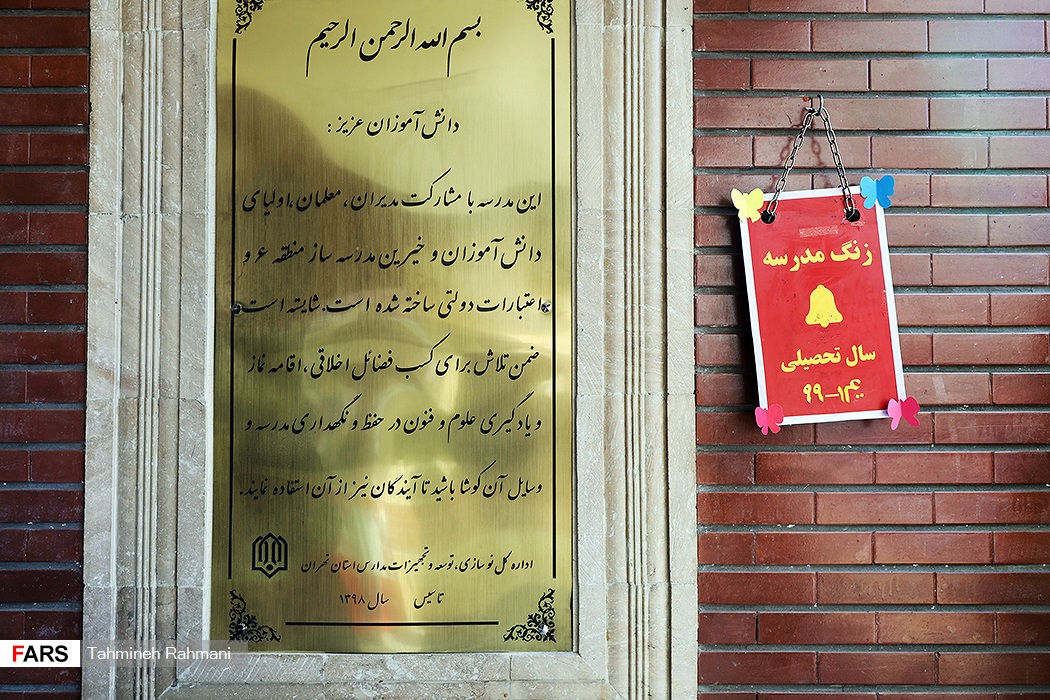 بسم الله الرحمن الرحیم
دانش آموزان عزیز :
این مدرسه با مشارکت مدیران ، معلمان ،اولیای
دانش آموزان و خیرین مدرسه ساز منطقه ۶ و
اعتبارات دولتی ساخته شده است.شایسته است
ضمن تلاش برای کسب فضائل اخلاقی ، اقامه نماز
و یادگیری علوم و فنون در حفظ و نگهداری مدرسه و
وسایل آن کوشا باشید تا آیندگان نیز از آن استفاده نمایند.
اداره کل نوسازی، توسعه و تجهیزات مدارس استان تهران
تاسیس سال ۱۳۹۸
زنگ مدرسه
سال تحصیلی
FARS Tahmineh Rahmani